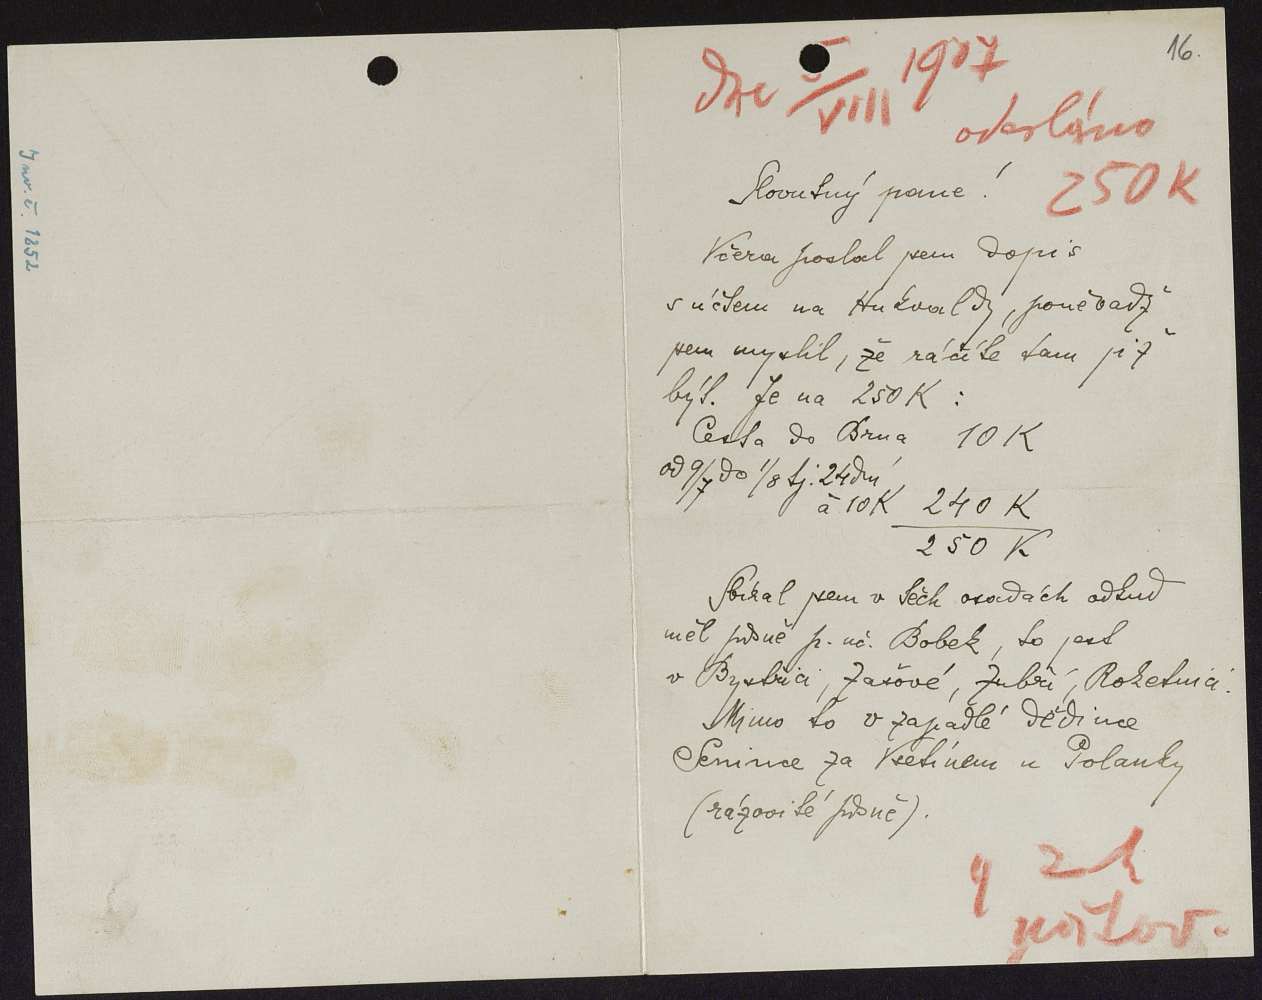 Inv. č. 1852
16.
Dne 5/VIII 1907
odesláno
250 K
Slovutný pane!
Včera poslal jsem dopis
s účtem na Hukvaldy, poněvadž
jsem myslil, že ráčíte tam již
být. Je na 250 K :
Cesta do Brna 10 K
od 9/7 do 1/8 tj. 24 dní
à 10 K 240 K
250 K
Sbíral jsem v těch osadách odkud
měl písně p. uč. Bobek, to jest
v Bystřici, Zašové, Zubří, Roketnici.
Mimo to v zapadlé dědince
Senince za Vsetínem u Polanky
(rázovité písně).